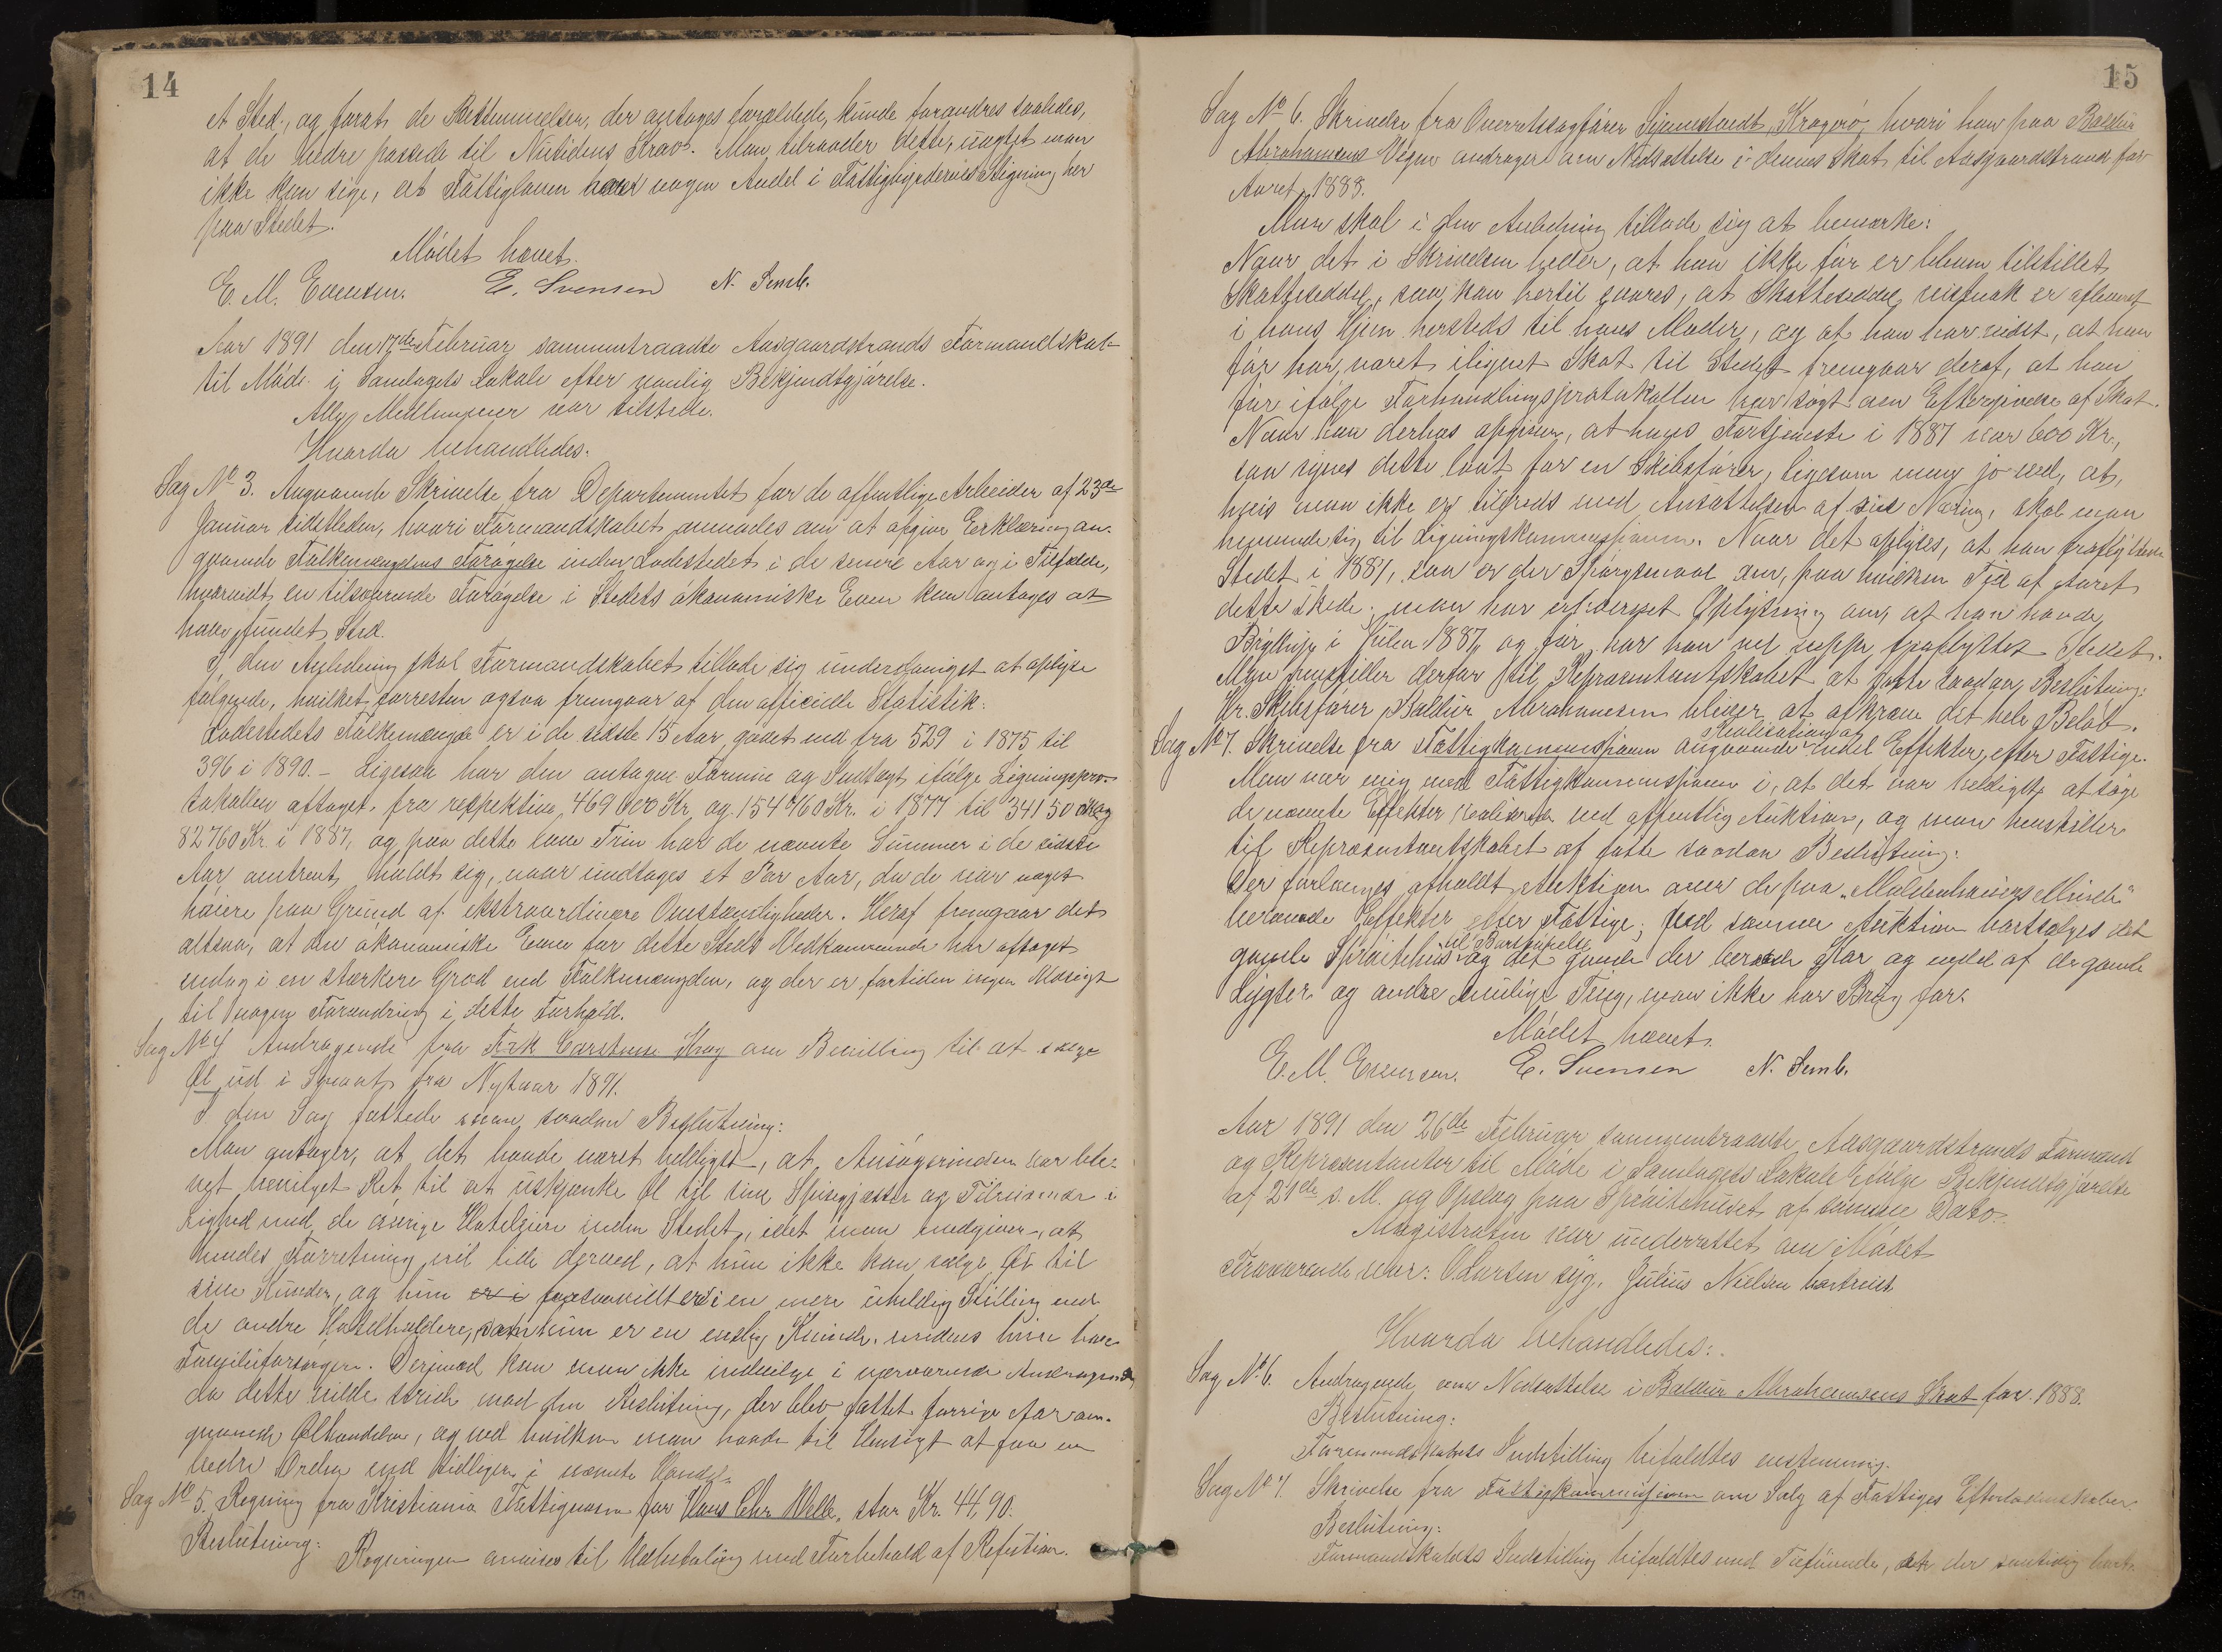 14
et Sted, og forat de Bestemmelser, der antages forældede, kunde forandres saaledes,
at de bedre passede til Nutidens Krav. Man tilraader dette, uagtet man
ikke kan sige, at Fattigloven har nogen Andel i Fattigbyrdernes Stigning her
paa Stedet.
Mödet hævet.
E. M. Evensen. E. Svensen N. Semb.
Aar 1891 den 17de Februar sammentraadte Aasgaardstrands Formandskab
til Möde i Samlagets Lokale efter vanlig Bekjendtgjörelse.
Alle Medlemmer var tilstede.
Hvorda behandledes:
Sag No 3. Angaaende Skrivelse fra Departementet for de offentlige Arbeider af 23de
Januar sidstleden, hvori Formandskabet anmodes om at afgive Erklæring an-
gaaende Folkemængdens Forögelse inden Ladestedet i de senere Aar og i Tilfælde,
hvorvidt en tilsvarende Forögelse i Stedets ökonomiske Evne kan antages at
have fundet Sted.
I den Anledning skal Formandskabet tillade sig underdanigst at oplyse
fölgende, hvilket forresten ogsaa fremgaar af den officielle Statistik:
Ladestedets Folkemængde er i de sidste 15 Aar gaaet ned fra 529 i 1875 til
396 i 1890. - Ligesaa har den antagne Formue og Indtægt ifölge Ligningspro-
tokollen aftaget fra respektive 469 000 Kr og 154 460 Kr. i 1877 til 34150 og
82760 Kr i 1887, og paa dette lave Trin har de nævnte Summer i de sidste
Aar omtrent holdt sig, naar undtages et Par Aar, da de var noget
höiere paa Grund af ekstraordinære Omstændigheder. Heraf fremgaar det
altsaa, at den ökonomiske Evne for dette Steds Vedkommende har aftaget
endog i en stærkere Grad end Folkemængden, og der er fortiden ingen Udsigt
til nogen Forandring i dette Forhold.
Sag No 4 Andragende fra Frk Carstense Krag om Bevilling til at sælge
Öl ud i Smaat fra Nytaar 1891.
I den Sag fattede man saadan Beslutning:
Man antager, at det havde været heldigst, at Ansögerinden var ble-
vet bevilget Ret til at udskjænke Öl til sine Spisegjæster og Tilreisende i
Lighed med de övrige Hoteleiere inden Stedet, idet man medgiver, at
hendes Forretning vil lide derved, at hun ikke kan sælge Öl til
sine Kunder, og hun er i forsaavidt er i en mere uheldig Stilling end
de andre Hotelholdere, som hun er en enslig Kvinde, medens hine har
Familieforsörgere. Derimod kan man ikke indvilge i nærværende Andragende
da dette vilde stride mod den Beslutning, der blev fattet forrige Aar an-
gaaende Ölhandelen, og ved hvilken man havde til Hensigt at faa en
bedre Orden end tidligere i nævnte Handel.
Sag No 5. Regning fra Kristiania Fattigvæsen for Hans Chr. Melle, stor Kr. 44,90.
Beslutning:
Regningen anvises til Udbetaling med Forbehold af Refusion.
15
Sag No 6. Skrivelse fra Overretssagförer Kragerö, hvori han paa Baldur
Abrahamsens Vegne andrager om Nedsættelse i dennes Skat til Aasgaardstrand for
Aaret 1888.
Man skal i den Anledning tillade sig at bemærke:
Naar det i Skrivelsen heder, at han ikke för er bleven tilstillet
Skatteseddel, saa kan hertil svares, at Skatteseddel er afleveret
i hans Hjem hersteds til hans Moder, og at han har vidst, at han
för har været ilignet Skat til Stedet fremgaar deraf, at han
för ifölge Forhandlingsprotokollen har sögt om Eftergivelse af Skat.
Naar han derhos opgiver, at hans Fortjeneste i 1887 var 600 Kr.,
saa synes dette lavt for en Skibsförer, ligesom man jo ved, at,
hvis man ikke er tilfreds med Ansættelsen af sin Næring, skal man
henvende sig til Ligningskommissionen. Naar det oplyses, at han fraflyttede
Stedet i 1887, saa er der Spörgsmaal om, paa hvilken Tid af Aaret
dette skede; man har erhvervet Oplysning om, at han havde
Bryllup i Julen 1887 og för har han vel neppe fraflyttet Stedet.
Man henstiller derfor til Repræsentantskabet at fatte saadan Beslutning:
Hr. Skibsförer Baldur Abrahamsen bliver at afkræve det hele Belöb.
Sag No 7. Skrivelse fra Fattigkommissionen angaaende Realisation af endel Effekter efter Fattige.
Man var enig med Fattigkommissionen i, at det var heldigst at söge
de nævnte Effekter realiserede ved offentlig Auktion, og man henstiller
til Repræsentantskabet at fatte saadan Beslutning:
Der forlanges afholdt Auktion over de paa „Moldenhauers Minde"
værende Effekter efter Fattige; ved samme Auktion bortsælges det
gamle Spröitehus til Bortflyttelse og det gamle der værende Kar og endel af de gamle
Lygter og andre mulige Ting, man ikke har Brug for.
Mödet hævet.
E. M. Evensen. E. Svensen N. Semb.
Aar 1891 den 26de Februar sammentraadte Aasgaardstrands Formænd
og Repræsentanter til Möde i Samlagets Lokale ifölge Bekjendtgjörelse
af 21de s. M. og Opslag paa Spröitehuset af samme Dato.
Magistraten var underrettet om Mödet
Fraværende var: O. Larsen syg, Julius Nielsen bortreist
Hvorda behandledes:
Sag No 6. Andragende om Nedsættelse i Baldur Abrahamsens Skat for 1888.
Beslutning:
Formandskabets Indstilling bifaldtes enstemmig.
Sag No 7. Skrivelse fra Fattigkommissionen om Salg af Fattiges Efterladenskaber.
Beslutning:
Formandskabets Indstilling bifaldtes med Tilföiende, at der samtidig